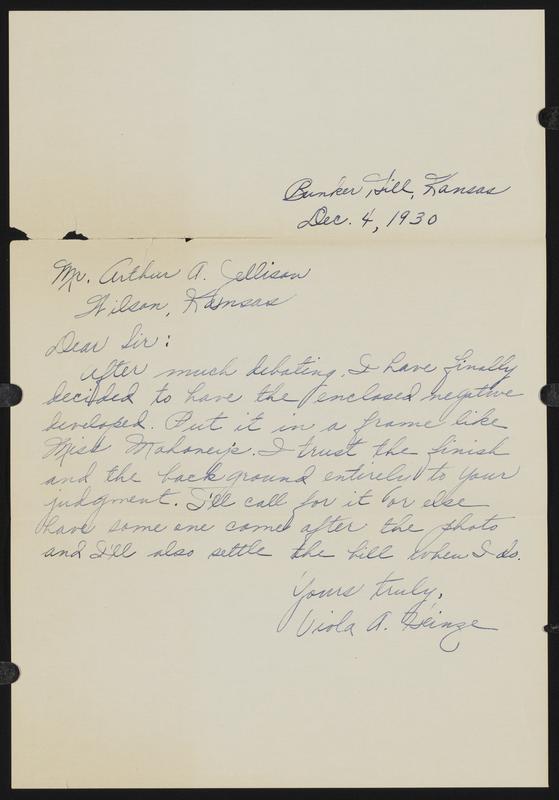 Bunker Hill, Kansas
Dec. 4, 1930
Mr. Arthur A. Jellison
Wilson, Kansas
Dear Sir:
After much debating, I have finally
decided to have the enclosed negative
developed. Put it in a frame like
Miss Mahoney's. I trust the finish
and the background entirely to your
judgment. I'll call for it or else
have some one come after the photo
and I'll also settle the bill when I do.
Yours truly,
Viola A. Heinze